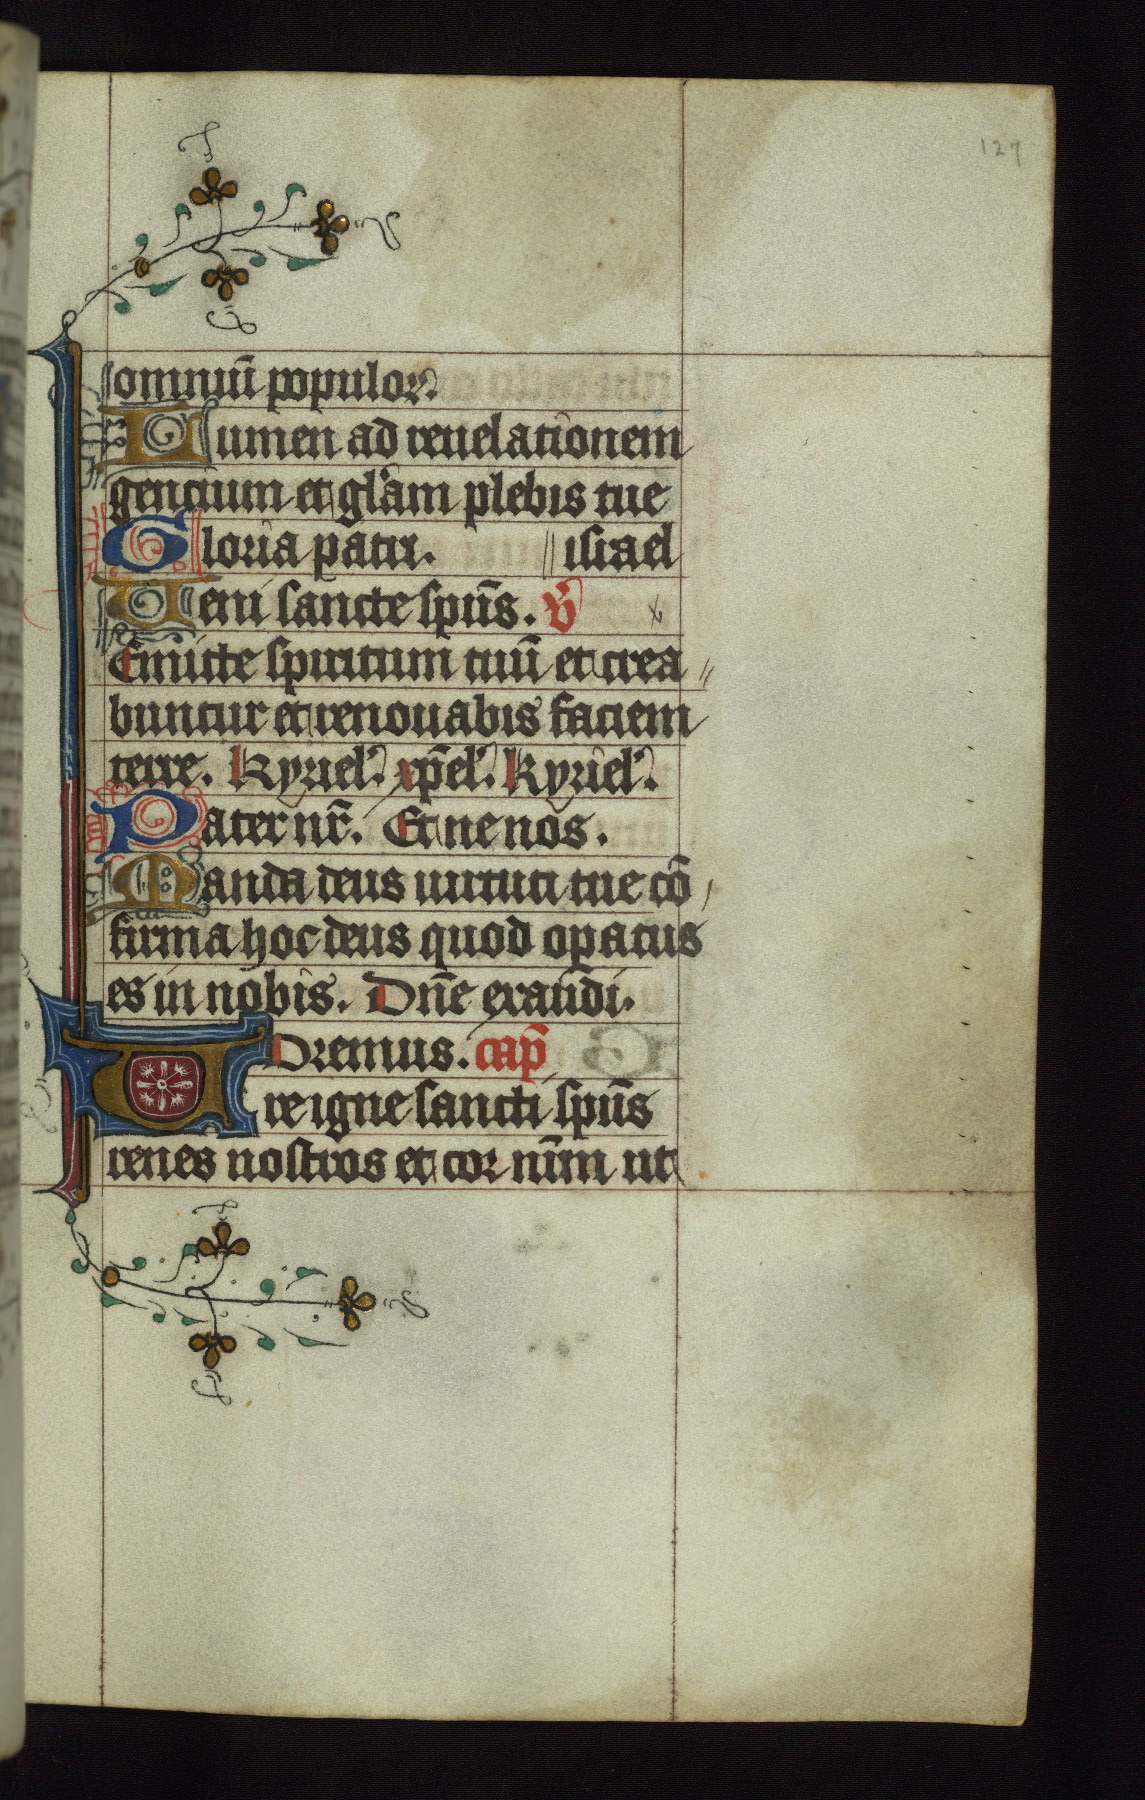 127
omniu᷑ populoꝝ.
Lumen ad reuelationem
gencium et gl̓am plebis tue
Gloria patri. // israel
Ueni sancte sp̄us. v̄
Emitte spiritum tuū et crea //
buntur et renouabis faciem
terre. Kyriel'. xp̄el'. Kyriel'.
Pater nr̄. Et ne nos.
Manda deus uirtuti tue cō /
firma hoc deus quod opatus
es in nobis. Dn̄e exaudi.
Oremus. cap̄
Ure igne sancti sp̄us
renes nostros et cor nr̄m ut